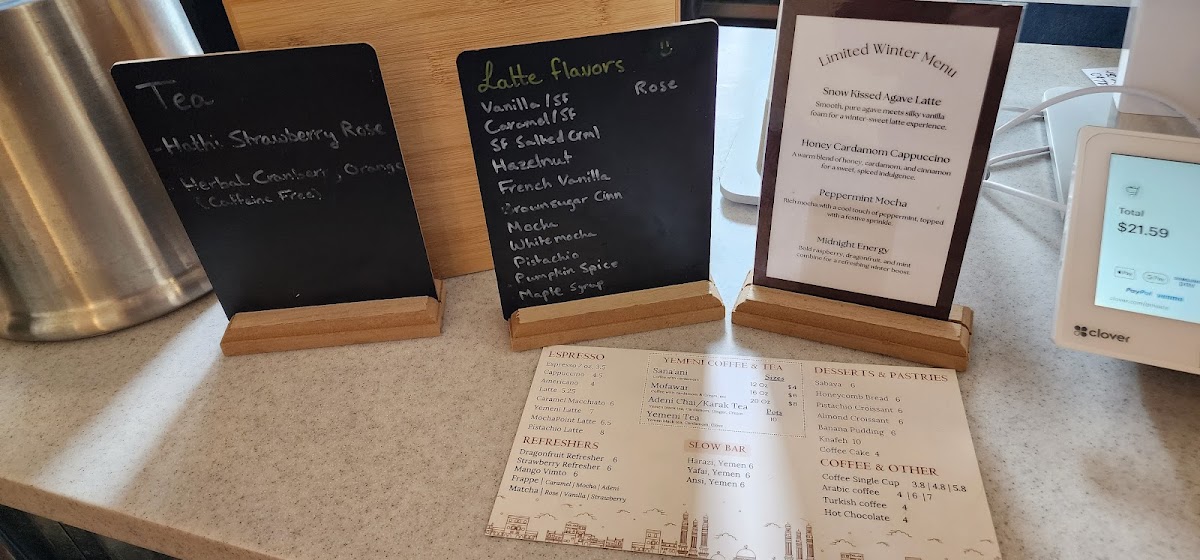 Tea
- Hathi Strawberry Rose
- Herbal Cranberry, Orange
(Caffeine Free)
Latte flavors
Rose
Vanilla / SF
Caramel / SF
SF Salted Crml
Hazelnut
French Vanilla
Brownsugar Cinn
Mocha
White mocha
Pistachio
Pumpkin Spice
Maple Syrup
Limited Winter Menu
Snow Kissed Agave Latte
Smooth, pure agave meets silky vanilla
foam for a winter-sweet latte experience.
Honey Cardamom Cappuccino
A warm blend of honey, cardamom, and cinnamon
for a sweet, spiced indulgence.
Peppermint Mocha
Rich mocha with a cool touch of peppermint, topped
with a festive sprinkle.
Midnight Energy
Bold raspberry, dragonfruit, and mint
combine for a refreshing winter boost.
Total
$21.59
Pay
PayPal
clover
ESPRESSO
Espresso 2 oz 3.5
Cappuccino 4.5
Americano 4
Latte 5.25
Caramel Macchiato 6
Yemeni Latte 7
MochaPoint Latte 6.5
Pistachio Latte 8
REFRESHERS
Dragonfruit Refresher 6
Strawberry Refresher 6
Mango Vimto 6
Frappe | Caramel | Mocha | Adeni
Matcha | Rose | Vanilla | Strawberry
YEMENI COFFEE & TEA
Sana'ani
Mofawar
Adeni Chai /Karak Tea
Yemeni Tea
Sizes
12 Oz $4
16 Oz $6
20 Oz $8
Pots
10
SLOW BAR
Harazi, Yemen 6
Yafai, Yemen 6
Ansi, Yemen 6
DESSERTS & PASTRIES
Sabaya 6
Honeycomb Bread 6
Pistachio Croissant 6
Almond Croissant 6
Banana Pudding 6
Knafeh 10
Coffee Cake 4
COFFEE & OTHER
Coffee Single Cup 3.8 | 4.8 | 5.8
Arabic coffee 4 | 6 | 7
Turkish coffee 4
Hot Chocolate 4